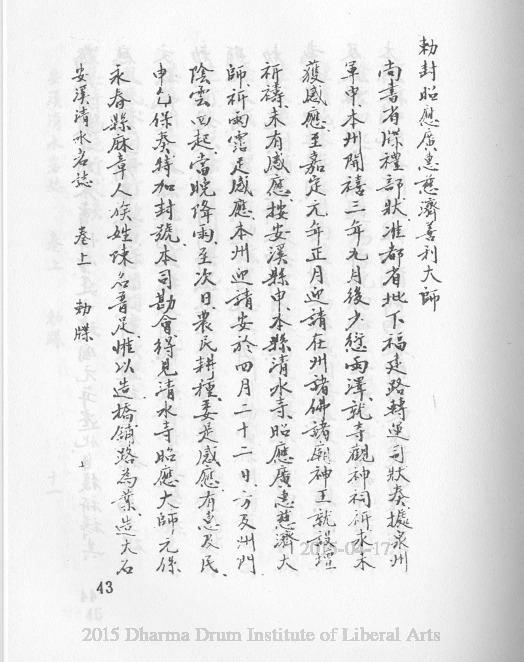 勅封昭應廣惠慈濟善利大師
尚書省牒禮部狀准都省批下福建路轉運司狀奏據泉州
軍申本州開禧三年九月後少愆雨澤就寺觀神祠祈求未
獲感應至嘉定元年正月迎請在州諸佛諸廟神王就設壇
祈禱未有感應按安溪縣申本縣清水寺昭應廣惠慈濟大
師祈雨靈足感應本州迎請安於四月二十二日方及州門
陰雲四起當晚降雨至次日農民耕種委是感應有惠及民
申乞保奏特加封號本司勘會得見清水寺昭應大師元係
永春縣麻章人俟姓陳名普足惟以造橋鋪路為業造大石
安溪清水名誌 卷上 勅牒 上
43
2015-04-17
2015 Dharma Drum Institute of Liberal Arts